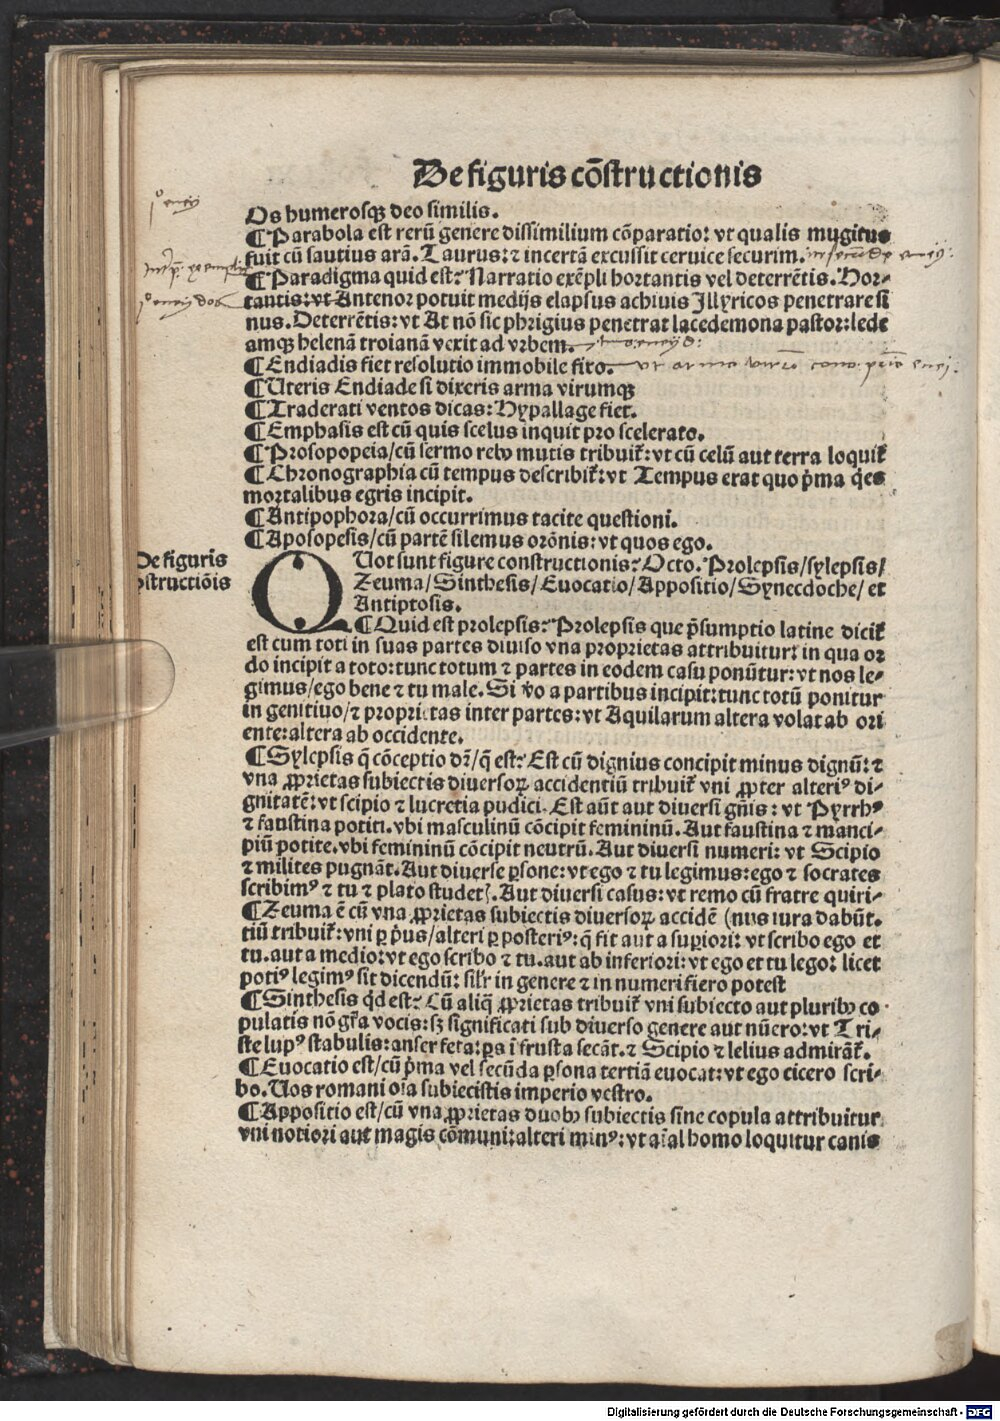 De figuris cōstructionis
Os humerosqꝫ deo similis.
¶Parabola est rerū genere dissimilium cōparatio: vt qualis mugitus
fuit cū sautius arā. Taurus: ⁊ incertā excussit ceruice securim.
¶Paradigma quid est? Narratio exēpli hortantis vel deterrētis. Hor⸗
tantis: vt Antenor potuit medijs elapsus achiuis Jllyricos penetrare si
nus. Deterrētis: vt At nō sic phrigius penetrat lacedemona pastor: lede
amqꝫ helenā troianā vexit ad vrbem.
¶Endiadis fiet resolutio immobile fixo.
vt arma virū cano
¶Uteris Endiade si dixeris arma virumqꝫ
¶Traderati ventos dicas: Hypallage fiet.
¶Emphasis est cū quis scelus inquit pro scelerato.
¶Prosopopeia/cū sermo rebꝰ mutis tribuit᷑: vt cū celū aut terra loquit᷑
¶Chronographia cū tempus describit᷑: vt Tempus erat quo p̄ma q̄es
mortalibus egris incipit.
¶Antipophora/cū occurrimus tacite questioni.
¶Aposopesis/cū partē silemus orōnis: vt quos ego.
De figuris
ostructiōis
QUot sunt figure constructionis? Octo. Prolepsis/sylepsis/
Zeuma/Sinthesis/Euocatio/Appositio/Synecdoche/ et
Antiptosis.
¶Quid est prolepsis? Prolepsis que p̄sumptio latine dicit᷑
est cum toti in suas partes diuiso vna proprietas attribuitur: in qua or
do incipit a toto: tunc totum ⁊ partes in eodem casu ponūtur: vt nos le⸗
gimus/ego bene ⁊ tu male. Si v̄o a partibus incipit: tunc totū ponitur
in genitiuo/⁊ proprietas inter partes: vt Aquilarum altera volat ab ori
ente: altera ab occidente.
¶Sylepsis q̄ cōceptio dr̄/q̄ est? Est cū dignius concipit minus dignū: ⁊
vna ꝓprietas subiectis diuersoꝝ accidentiū tribuit᷑ vni ꝓpter alteriꝰ di⸗
gnitatē: vt scipio ⁊ lucretia pudici. Est aūt aut diuersi gn̄is: vt Pyrrhꝰ
⁊ faustina potiti. vbi masculinū cōcipit femininū. Aut faustina ⁊ manci⸗
piū potite. vbi femininū cōcipit neutrū. Aut diuersi numeri: vt Scipio
⁊ milites pugnāt. Aut diuerse ꝑsone: vt ego ⁊ tu legimus: ego ⁊ socrates
scribimꝰ ⁊ tu ⁊ plato studetꝭ. Aut diuersi casus: vt remo cū fratre quiri⸗
¶Zeuma ē cū vna ꝓprietas subiectis diuersoꝝ accidē (nus iura dabūt.
tiū tribuit᷑: vni ꝑ p̄us/alteri ꝑ posteriꝰ: q̄ fit aut a suꝑiori: vt scribo ego et
tu. aut a medio: vt ego scribo ⁊ tu. aut ab inferiori: vt ego et tu lego: licet
potiꝰ legimꝰ sit dicendū: sil̓r in genere ⁊ in numeri fiero potest
¶Sinthesis q̇d est? Cū aliq̄ ꝓprietas tribuit᷑ vni subiecto aut pluribꝰ co
pulatis nō gr̄a vocis: sꝫ significati sub diuerso genere aut nūero: vt Tri⸗
ste lupꝰ stabulis: anser feta: ꝑs ī frusta secāt. ⁊ Scipio ⁊ lelius admirāt᷑.
¶Euocatio est/cū p̄ma vel secūda ꝑsona tertiā euocat: vt ego cicero scri⸗
bo. Uos romani oīa subiecistis imperio vestro.
¶Appositio est/cū vna ꝓprietas duobꝰ subiectis sine copula attribuitur
vni notiori aut magis cōmuni: alteri minꝰ: vt aīal homo loquitur canis
Digitalisierung gefördert durch die Deutsche Forschungsgemeinschaft - DFG